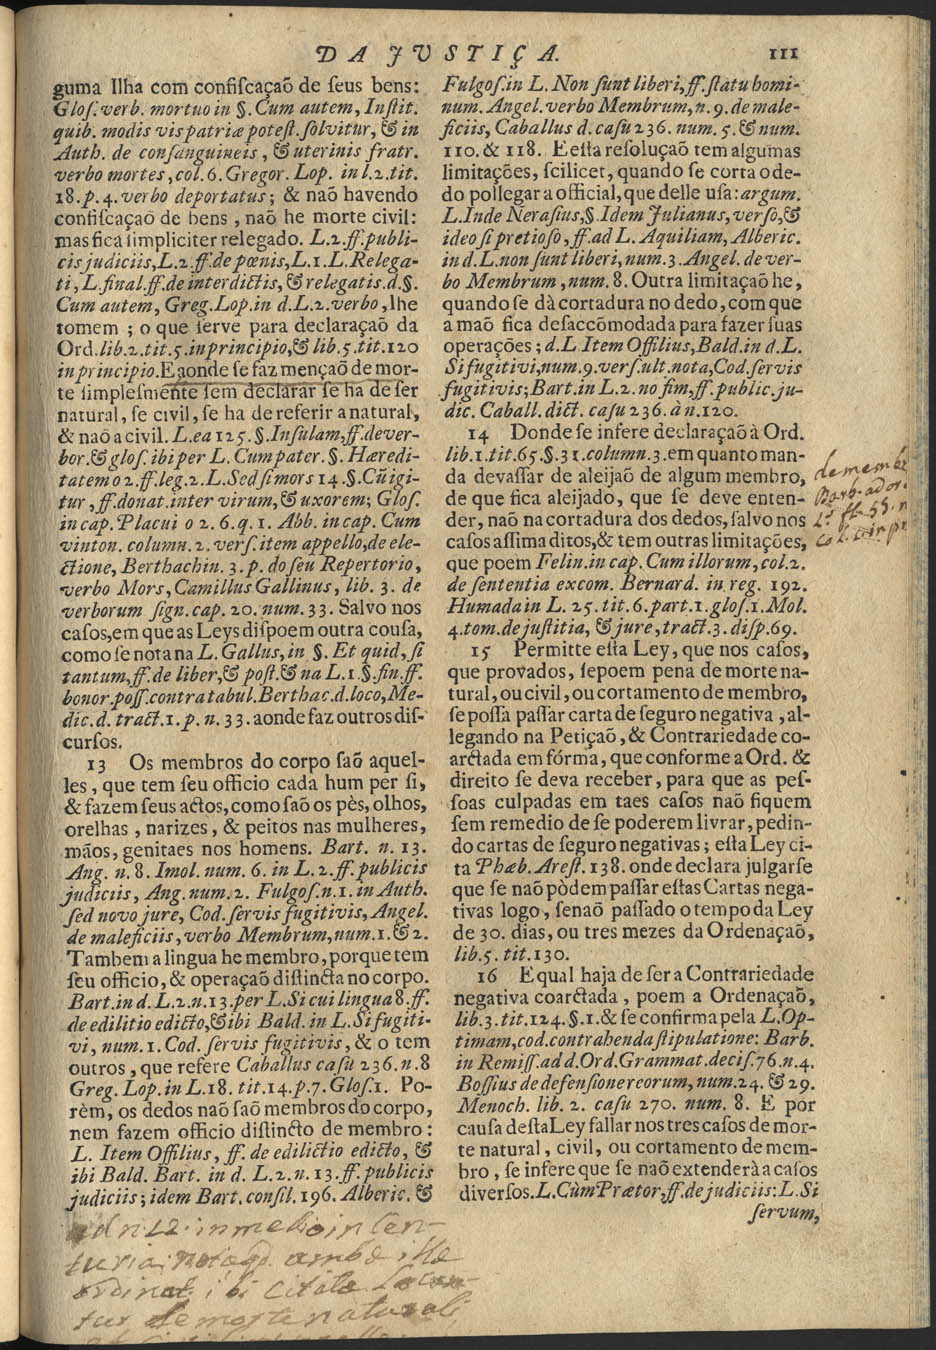 DA JUSTIÇA. 111
guma Ilha com confiſcaçaõ de ſeus bens:
Gloſ. verb. mortuo in §. Cum autem, Inſtit.
quib. modis vis patriæ poteſt. ſolvitur, & in
Auth. de conſanguineis, & uterinis fratr.
verbo mortes, col. 6. Gregor. Lop. in l. 2. tit.
18. p. 4. verbo deportatus; & naõ havendo
confiſcaçaõ de bens, naõ he morte civil:
mas fica ſimpliciter relegado. L. 2. ff. publi-
cis judiciis, L. 2. ff. de pœnis, L. 1. L. Relega-
ti, L. final. ff. de interdictis, & relegatis. d. §.
Cum autem, Greg. Lop. in d. L. 2. verbo, lhe
tomem; o que ſerve para declaraçaõ da
Ord. lib. 2. tit. 5. in principio, & lib. 5. tit. 120
in principio. E aonde ſe faz mençaõ de mor-
te ſimpleſmente ſem declarar ſe ha de ſer
natural, ſe civil, ſe ha de referir a natural,
& naõ a civil. L. ea 125. §. Inſulam, ff. de ver-
bor. & gloſ. ibi per L. Cum pater. §. Hæredi-
tatem o 2. ff. leg. 2. L. Sed ſi mors 14. §. Cũ igi-
tur, ff. donat. inter virum, & uxorem; Gloſ.
in cap. Placui o 2. 6. q. 1. Abb. in cap. Cum
vinton. column. 2. verſ. item appello, de ele-
ctione, Berthachin. 3. p. do ſeu Repertorio,
verbo Mors, Camillus Gallinus, lib. 3. de
verborum ſign. cap. 20. num. 33. Salvo nos
caſos, em que as Leys diſpoem outra couſa,
como ſe nota na L. Gallus, in §. Et quid, ſi
tantum, ff. de liber, & poſt. & na L. 1. §. fin. ff.
bonor. poſſ. contra tabul. Berthac. d. loco, Me-
dic. d. tract. 1. p. n. 33. aonde faz outros diſ-
curſos.
13 Os membros do corpo ſaõ aquel-
les, que tem ſeu officio cada hum per ſi,
& fazem ſeus actos, como ſaõ os pès, olhos,
orelhas, narizes, & peitos nas mulheres,
mãos, genitaes nos homens. Bart. n. 13.
Ang. n. 8. Imol. num. 6. in L. 2. ff. publicis
judiciis, Ang. num. 2. Fulgoſ. n. 1. in Auth.
ſed novo jure, Cod. ſervis fugitivis, Angel.
de maleficiis, verbo Membrum, num. 1. & 2.
Tambem a lingua he membro, porque tem
ſeu officio, & operaçaõ diſtincta no corpo.
Bart. in d. L. 2. n. 13. per L. Si cui lingua 8. ff.
de edilitio edicto, & ibi Bald. in L. Si fugiti-
vi, num. 1. Cod. ſervis fugitivis, & o tem
outros, que refere Caballus caſu 236. n. 8
Greg. Lop. in L. 18. tit. 14. p. 7. Gloſ. 1. Po-
rèm, os dedos naõ ſaõ membros do corpo,
nem fazem officio diſtincto de membro:
L. Item Offilius, ff. de edilictio edicto, &
ibi Bald. Bart. in d. L. 2. n. 13. ff. publicis
judiciis; idem Bart. conſil. 196. Alberic. &
Fulgoſ. in L. Non ſunt liberi, ff. ſtatu homi-
num. Angel. verbo Membrum, n. 9. de male-
ficiis, Caballus d. caſu 236. num. 5. & num.
110. & 118. E eſta reſoluçaõ tem algumas
limitações, ſcilicet, quando ſe corta o de-
do pollegar a official, que delle uſa: argum.
L. Inde Neraſius, §. Idem Julianus, verſo, &
ideo ſi pretioſo, ff. ad L. Aquiliam, Alberic.
in d. L. non ſunt liberi, num. 3. Angel. de ver-
bo Membrum, num. 8. Outra limitaçaõ he,
quando ſe dà cortadura no dedo, com que
a maõ fica deſaccõmodada para fazer ſuas
operações; d. L. Item Offilius, Bald. in d. L.
Si fugitivi, num. 9. verſ. ult. nota, Cod. ſervis
fugitivis; Bart. in L. 2. no fim, ff. public. ju-
dic. Caball. dict. caſu 236. à n. 120.
14 Donde ſe infere declaraçaõ à Ord.
lib. 1. tit. 65. §. 31. column. 3. em quanto man-
da devaſſar de aleijaõ de algum membro,
de que fica aleijado, que ſe deve enten-
der, naõ na cortadura dos dedos, ſalvo nos
caſos aſſima ditos, & tem outras limitações,
que poem Felin. in cap. Cum illorum, col. 2.
de ſententia excom. Bernard. in reg. 192.
Humada in L. 25. tit. 6. part. 1. gloſ. 1. Mol.
4. tom. de juſtitia, & jure, tract. 3. diſp. 69.
15 Permitte eſta Ley, que nos caſos,
que provados, ſe poem pena de morte na-
tural, ou civil, ou cortamento de membro,
ſe poſſa paſſar carta de ſeguro negativa, al-
legando na Petiçaõ, & Contrariedade co-
arctada em fórma, que conforme a Ord. &
direito ſe deva receber, para que as peſ-
ſoas culpadas em taes caſos naõ fiquem
ſem remedio de ſe poderem livrar, pedin-
do cartas de ſeguro negativas; eſta Ley ci-
ta Phæb. Areſt. 138. onde declara julgarſe
que ſe naõ pòdem paſſar eſtas Cartas nega-
tivas logo, ſenaõ paſſado o tempo da Ley
de 30. dias, ou tres mezes da Ordenaçaõ,
lib. 5. tit. 130.
16 E qual haja de ſer a Contrariedade
negativa coarctada, poem a Ordenaçaõ,
lib. 3. tit. 124. §. 1. & ſe confirma pela L. Op-
timam, cod. contrahenda ſtipulatione: Barb.
in Remiſſ. ad d. Ord. Grammat. deciſ. 76. n. 4.
Boſſius de defenſione reorum, num. 24. & 29.
Menoch. lib. 2. caſu 270. num. 8. E por
cauſa deſta Ley fallar nos tres caſos de mor-
te natural, civil, ou cortamento de mem-
bro, ſe infere que ſe naõ extenderà a caſos
diverſos. L. Cùm Prætor, ff. de judiciis: L. Si
ſervum,
de memb
Barb. ad or.
55
ambæ
ibi citatæ
de morte naturali